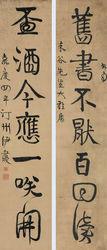 舊書不厭百回讀
未谷先生大雅屬
盃酒今應一咲開
嘉慶四年汀州伊秉綬